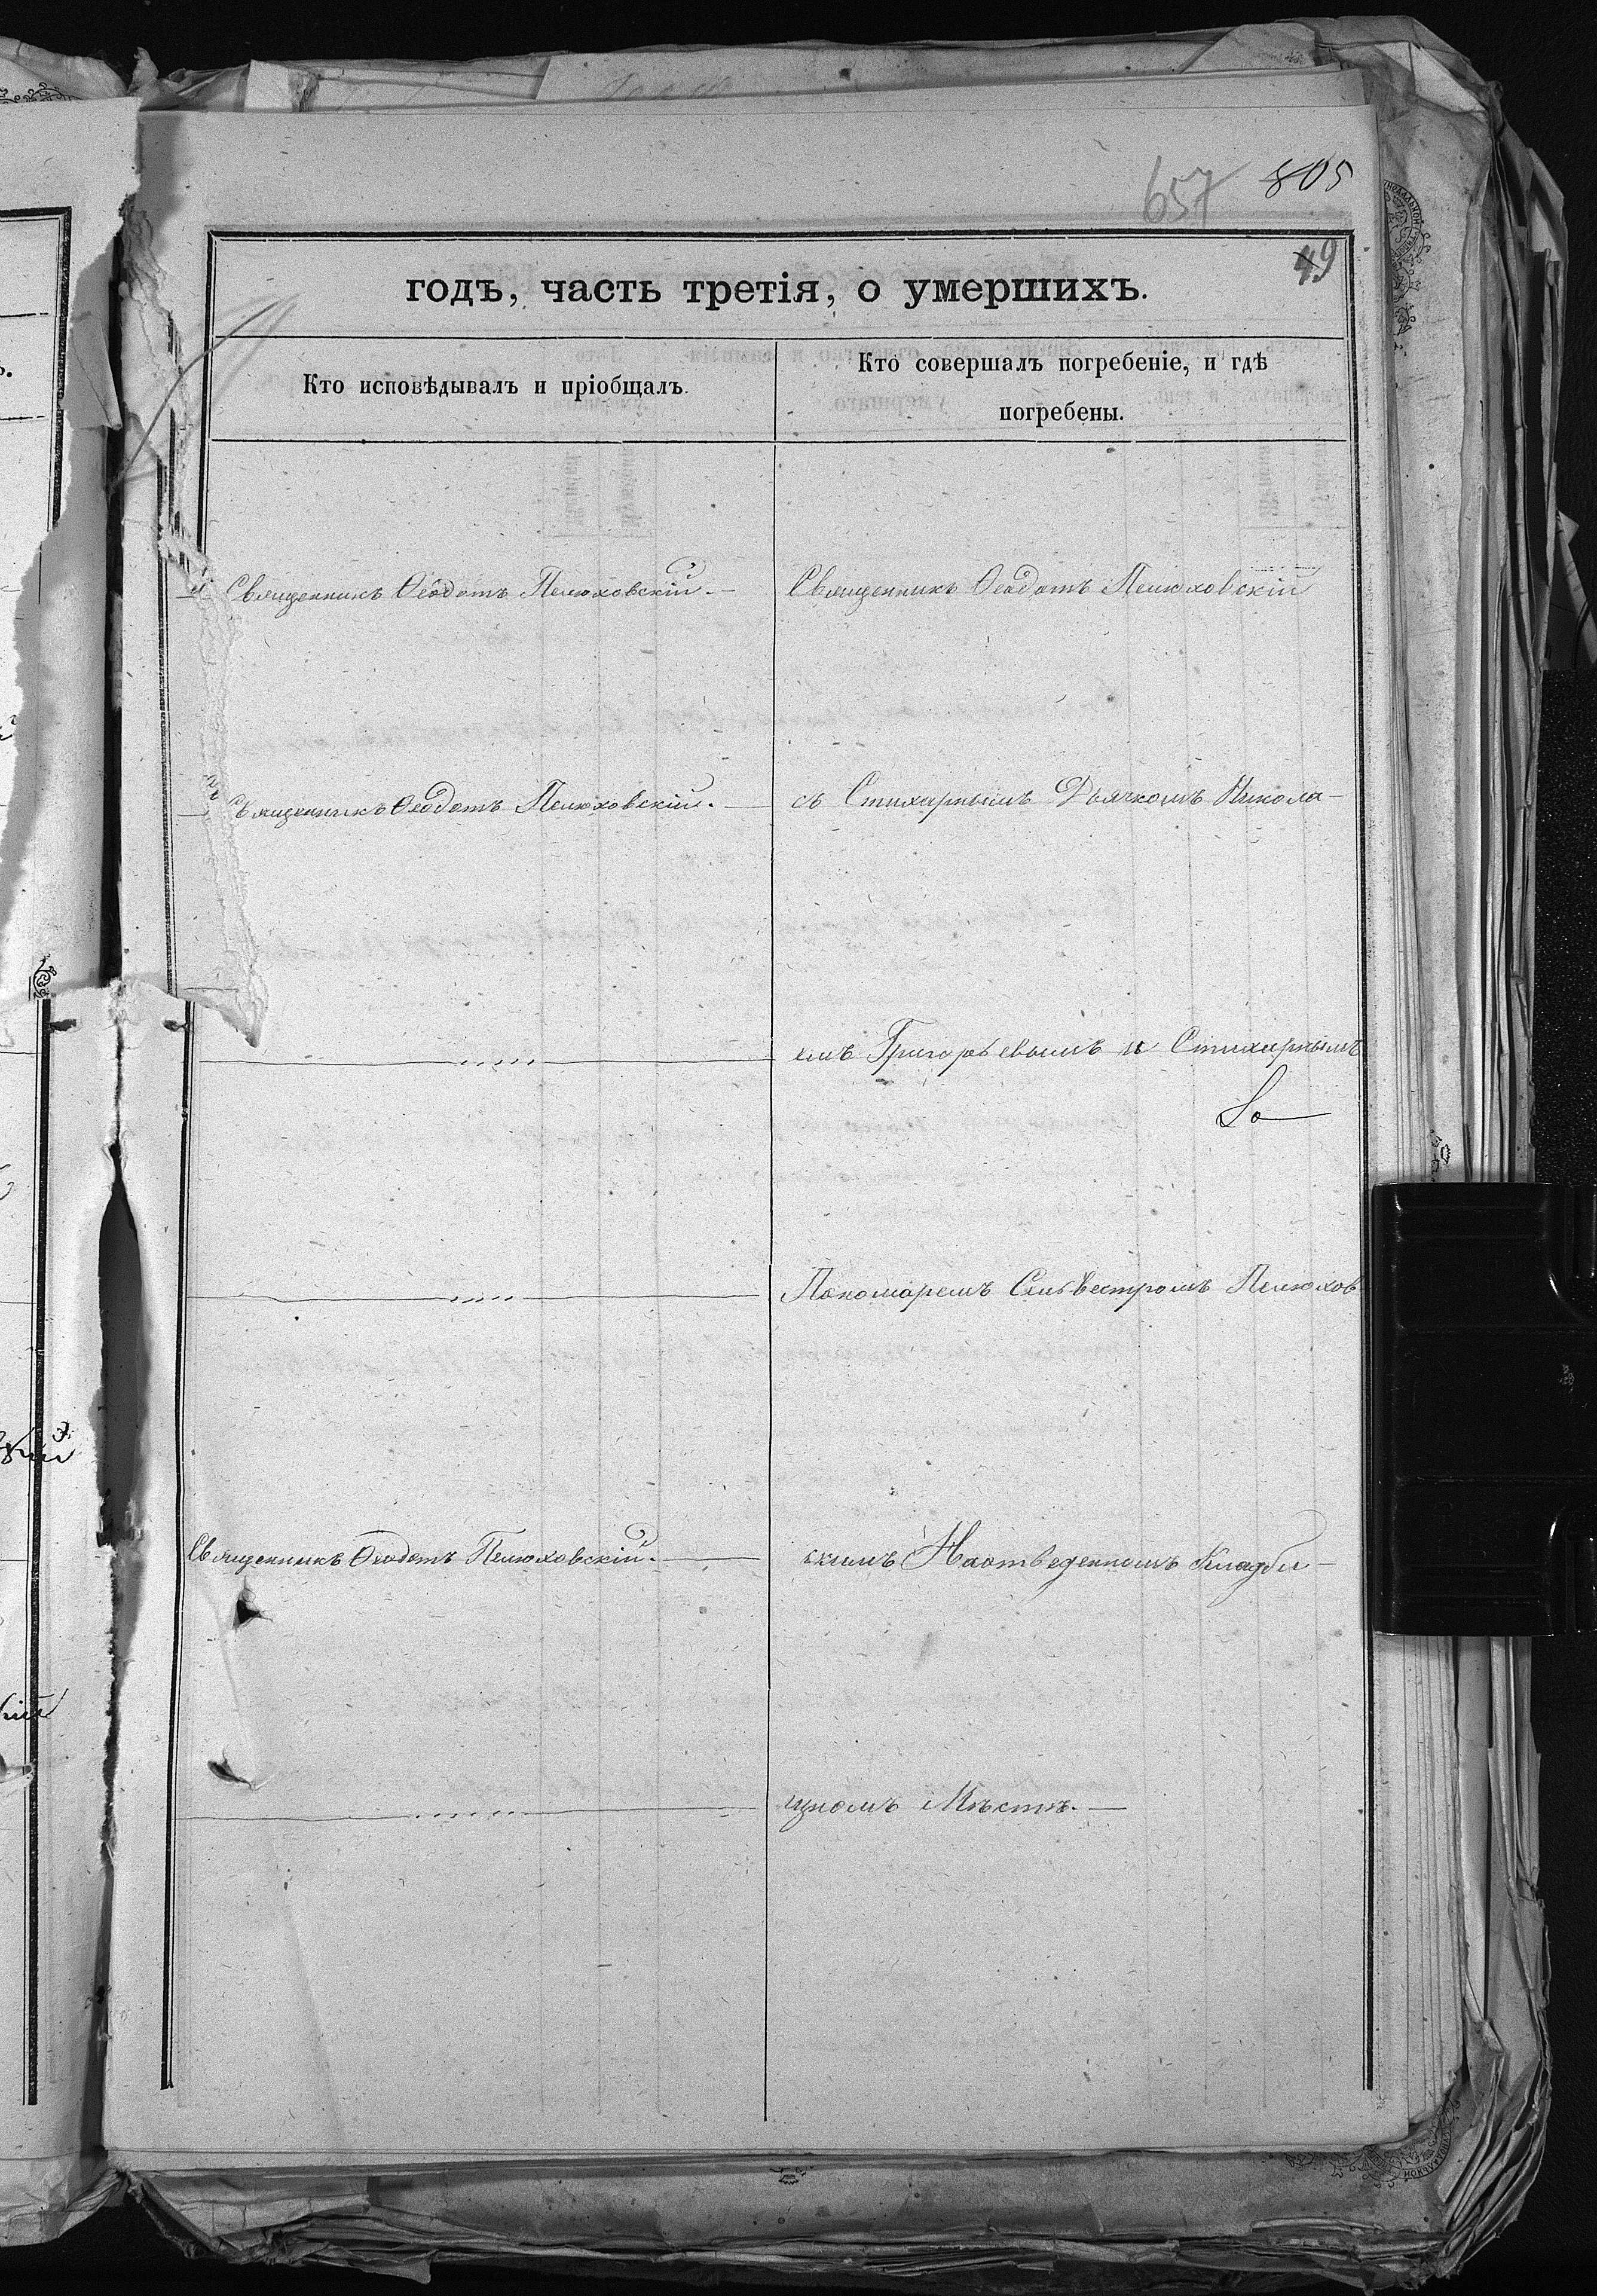 657 805
49
годъ, часть третія, о умершихъ.
Кто исповѣдывалъ и пріобщалъ.
Кто совершалъ погребеніе, и гдѣ
погребены.
Священникъ Ѳеодотъ Пелюховскій.
Священникъ Ѳеодотъ Пелюховскій
Священникъ Ѳеодотъ Пелюховскій.
съ Стихарнымъ Дьячкомъ Никола-
емъ Григорьевымъ и Стихарнымъ
Пономаремъ Сильвестромъ Пелюхов
Священникъ Ѳеодотъ Пелюховскій.
скимъ На отведенномъ Кладби-
щномъ Мѣстѣ.